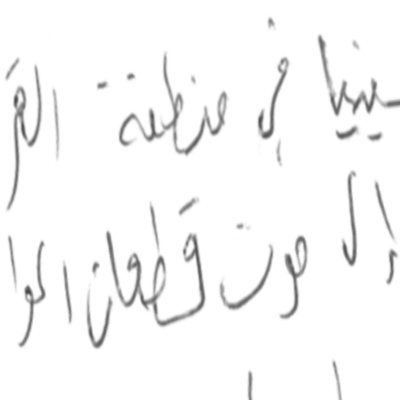 ينيا في منطقة القر
إلى موت قطعان الموا